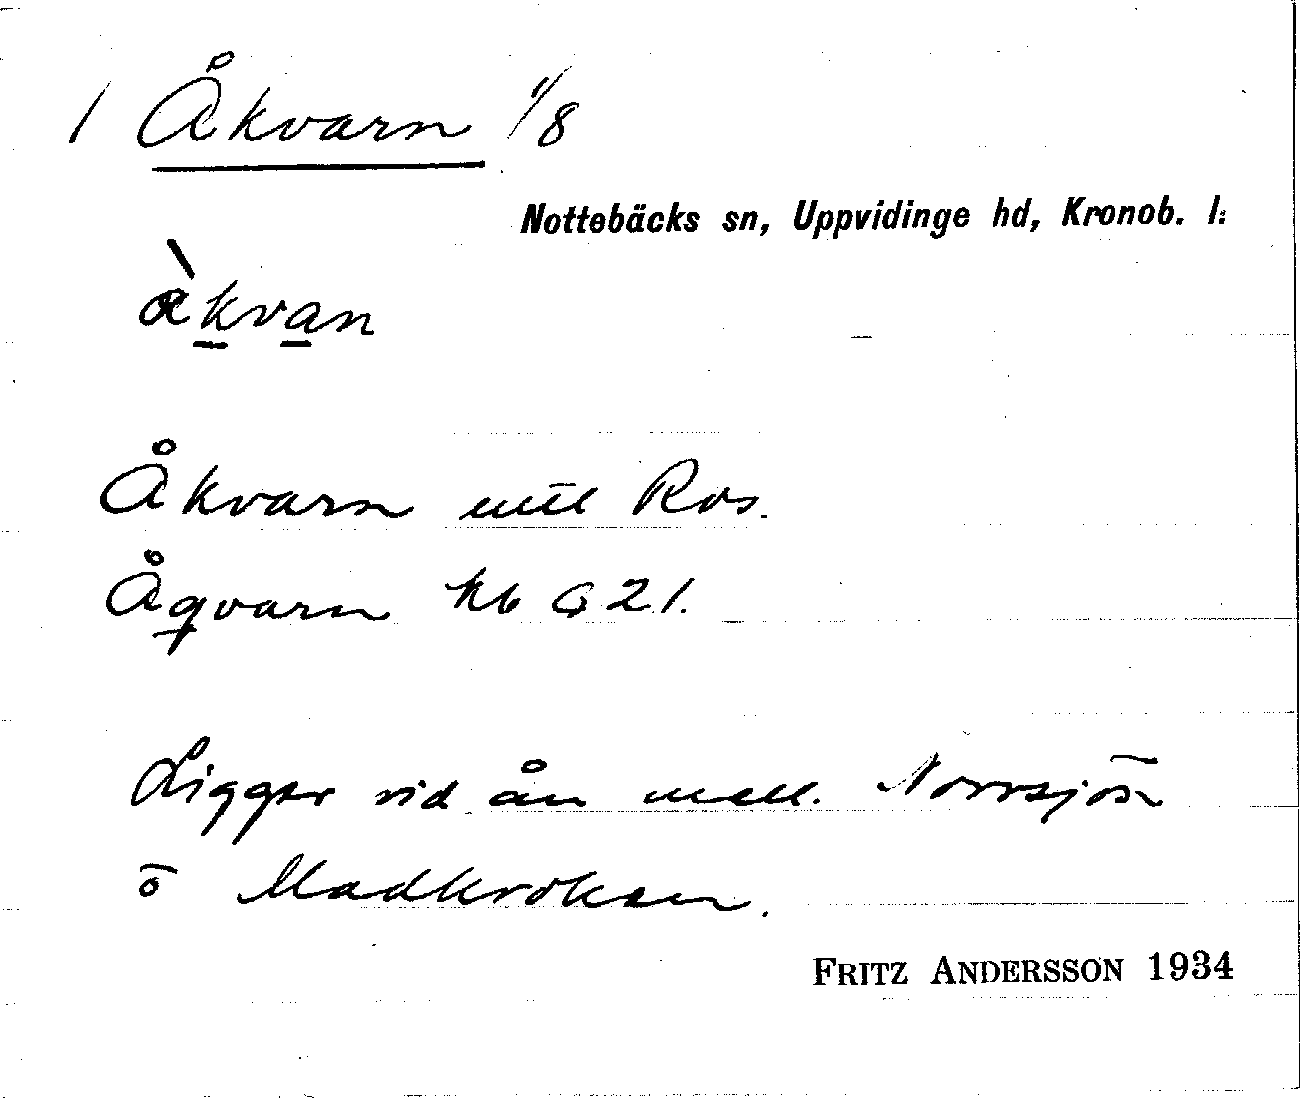 1 Åkvarn 1/8
Nottebäcks sn, Uppvidinge hd, Kronob. l:
åkvan
Åkvarn mtl Ros.
Åqvarn hb G 21.
Ligger vid ån mell. Norrsjön
o Madkroken.
FRITZ ANDERSSON 1934